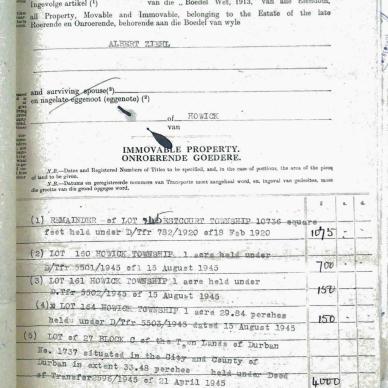 Ingevolge artikel (¹) van die .. Boedel Wet, 1913, van alle Eiendom,
all Property, Movable and Immovable, belonging to the Estate of the late
Roerende en Onroerende, behorende aan die Boedel van wyle
ALBERT ZIEHL
and surviving spouse(²)
en nagelate eggenoot (eggenote) (²)
of HOWICK
van
IMMOVABLE PROPERTY.
ONROERENDE GOEDERE.
N.B.—Dates and Registered Numbers of Titles to be specified, and, in the case of portions, the area of the piece
of land to be given.
N.B.—Datums en geregistreerde nommers van Transporte moet aangehaal word, en, ingeval van gedeeltes, moet
die grootte van die grond opgegee word.
£ s. d.
(1) REMAINDER of LOT ESTCOURT TOWNSHIP 10736 square
feet held under D/Tfr 782/1920 of 18 Feb 1920 1075 -
(2) LOT 160 HOWICK TOWNSHIP 1 acre held under
D/Tfr 5501/1945 of 15 August 1945 700 -
(3) LOT 161 HOWICK TOWNSHIP 1 acre held under
D/Tfr 5502/1945 of 15 August 1945 150 -
(4) LOT 164 HOWICK TOWNSHIP 1 acre 29.84 perches
held under D/Tfr 5503/1945 dated 15 August 1945 150 -
(5) LOT of 27 BLOCK C of the Town Lands of Durban
No. 1737 situated in the City and County of
Durban in extent 33.48 perches held under Deed
of Transfer 2596/1945 of 21 April 1945 4000